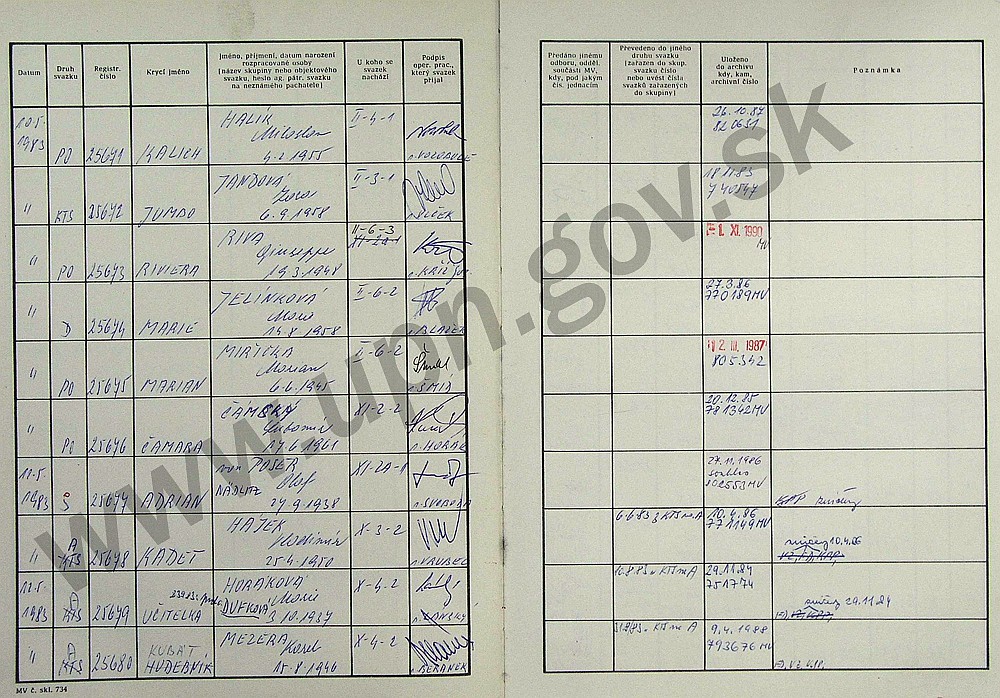 Datum
Druh svazku
Registr. číslo
Krycí jméno
Jméno, příjmení, datum narození
rozpracované osoby
(název skupiny nebo objektového
svazku, heslo ag. pátr. svazku
na neznámého pachatele)
U koho se
svazek
nachází
Podpis
oper. prac.,
který svazek
přijal
Předáno jinému
odboru, odděl.
součásti MV,
kdy, pod jakým
čís. jednacím
Převedeno do jiného
druhu svazku
(zařazen do skup.
svazku číslo
nebo uvést čísla
svazků zařazených
do skupiny)
Uloženo
do archivu
kdy, kam,
archivní číslo
Poznámka
10.5. 1983 PO 25671 KALICH
HALÍK
Miloslav
4.2.1955
II-4-1
26.10.87
820651
" KTS 25672 JUMBO
JANDOVÁ
6.9.1958
II-3-1
18.11.83
740547
" PO 25673 RIVIERA
RIVA
Giuseppe
19.3.1948
II-6-3
XI-2A-1
KŘÍŽ
1. XI. 1990
MV
" D 25674 MARIE
JELÍNKOVÁ
Marie
14.8.1958
II-6-2
BLAŽEK
27.3.86
770189MV
" PO 25675 MARIAN
MIŘIČKA
Marian
6.6.1945
II-6-2
ŠMÍD
2. III. 1987
805342
" PO 25676 ČAMARA
ČÁMSKÝ
Lubomír
27.6.1961
XI-2-2
HORÁK
20.12.85
781342MV
11.5. 1983 S 25677 ADRIAN
von POSER
NÄDLITZ Olof
27.9.1938
XI-2A-1
SVOBODA
27.11.1986
102553MV
" A KTS 25678 KADET
HÁJEK
Vladimír
25.4.1950
X-3-2
VRUBEL
6.6.83 z KTS na A
10.4.86
771149MV
zničeny 10.4.86
12.5. 1983 A KTS 25679 UČITELKA
HORÁKOVÁ
DUFKOVÁ Marie
3.10.1937
X-4-2
16.8.83 z KTS na A
29.11.84
751774
zničeny 29.11.84
" A KTS 25680 KUBÁT
HUDEBNÍK
MEZERA
Karel
15.8.1946
X-4-2
BERÁNEK
KTS na A
9.4.1988
793676MV
MV č. skl. 734
www.upn.gov.sk